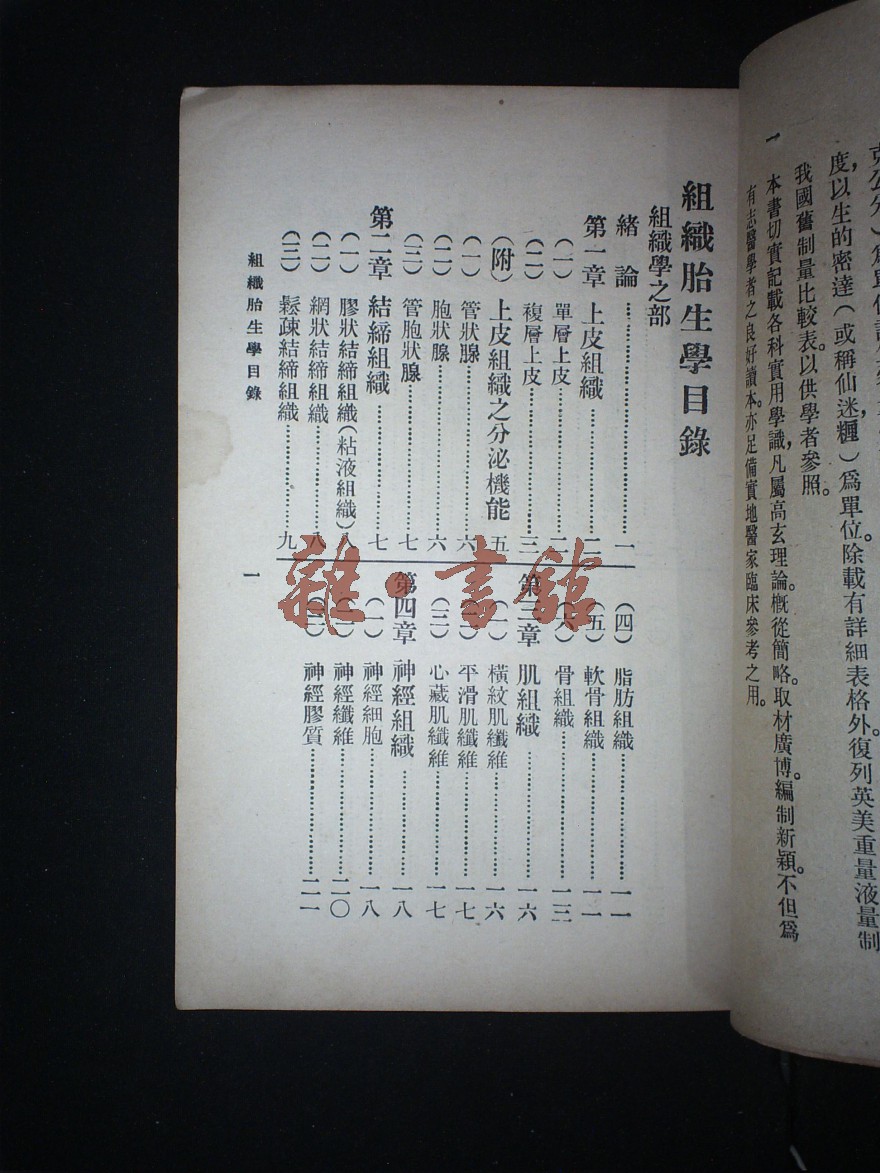 度,以生的密達(或稱仙迷糎)爲單位。除載有詳細表格外。復列英美重量液量制
我國舊制量比較表。以供學者參照。
一 本書切實記載各科實用學識,凡屬高玄理論。槪從簡略。取材廣博。編制新穎。不但爲
有志醫學者之良好讀本。亦足備實地醫家臨床參考之用。
組織胎生學目錄
組織學之部
緒論……一
第一章 上皮組織……二
(一) 單層上皮……二
(二) 複層上皮……三
(附) 上皮組織之分泌機能……五
(一) 管狀腺……六
(二) 胞狀腺……六
(三) 管胞狀腺……七
第二章 結締組織……七
(一) 膠狀結締組織(粘液組織)八
(二) 網狀結締組織……八
(三) 鬆疎結締組織……九
(四) 脂肪組織……一一
(五) 軟骨組織……一一
(六) 骨組織……一三
第三章 肌組織……一六
(一) 橫紋肌纖維……一六
(二) 平滑肌纖維……一七
(三) 心藏肌纖維……一七
第四章 神經組織……一八
(一) 神經細胞……一八
(二) 神經纖維……二〇
(三) 神經膠質……二一
組織胎生學目錄 一
雜·書館